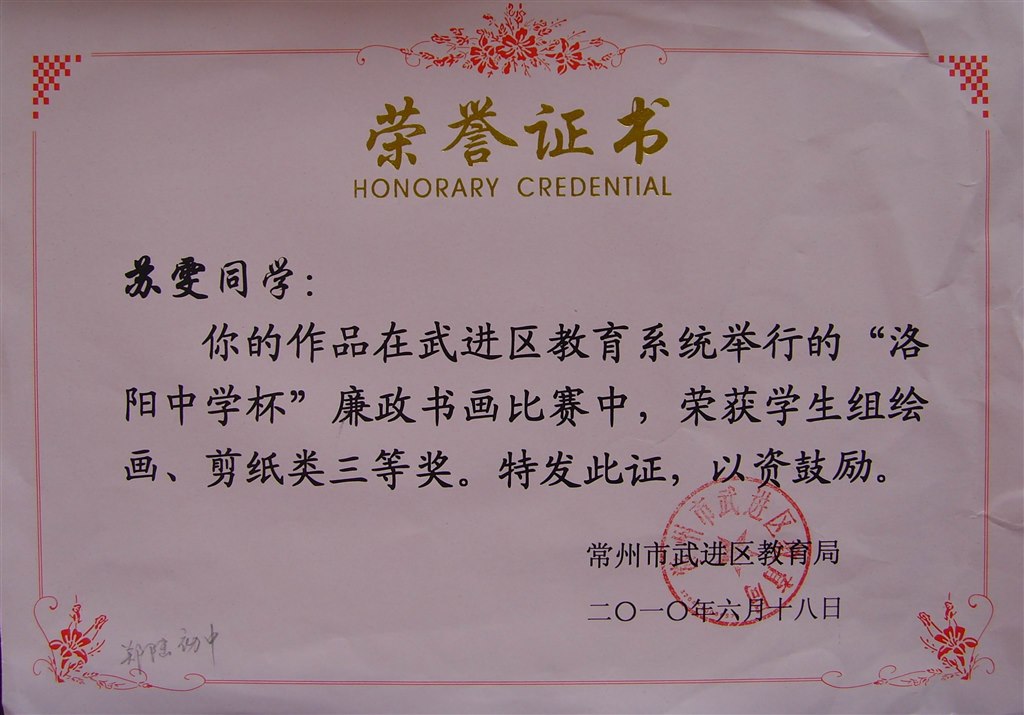 荣誉证书
HONORARY CREDENTIAL
苏雯同学：
你的作品在武进区教育系统举行的“洛
阳中学杯”廉政书画比赛中，荣获学生组绘
画、剪纸类三等奖。特发此证，以资鼓励。
常州市武进区教育局
常州市武进区教育局
二〇一〇年六月十八日
郑陆初中